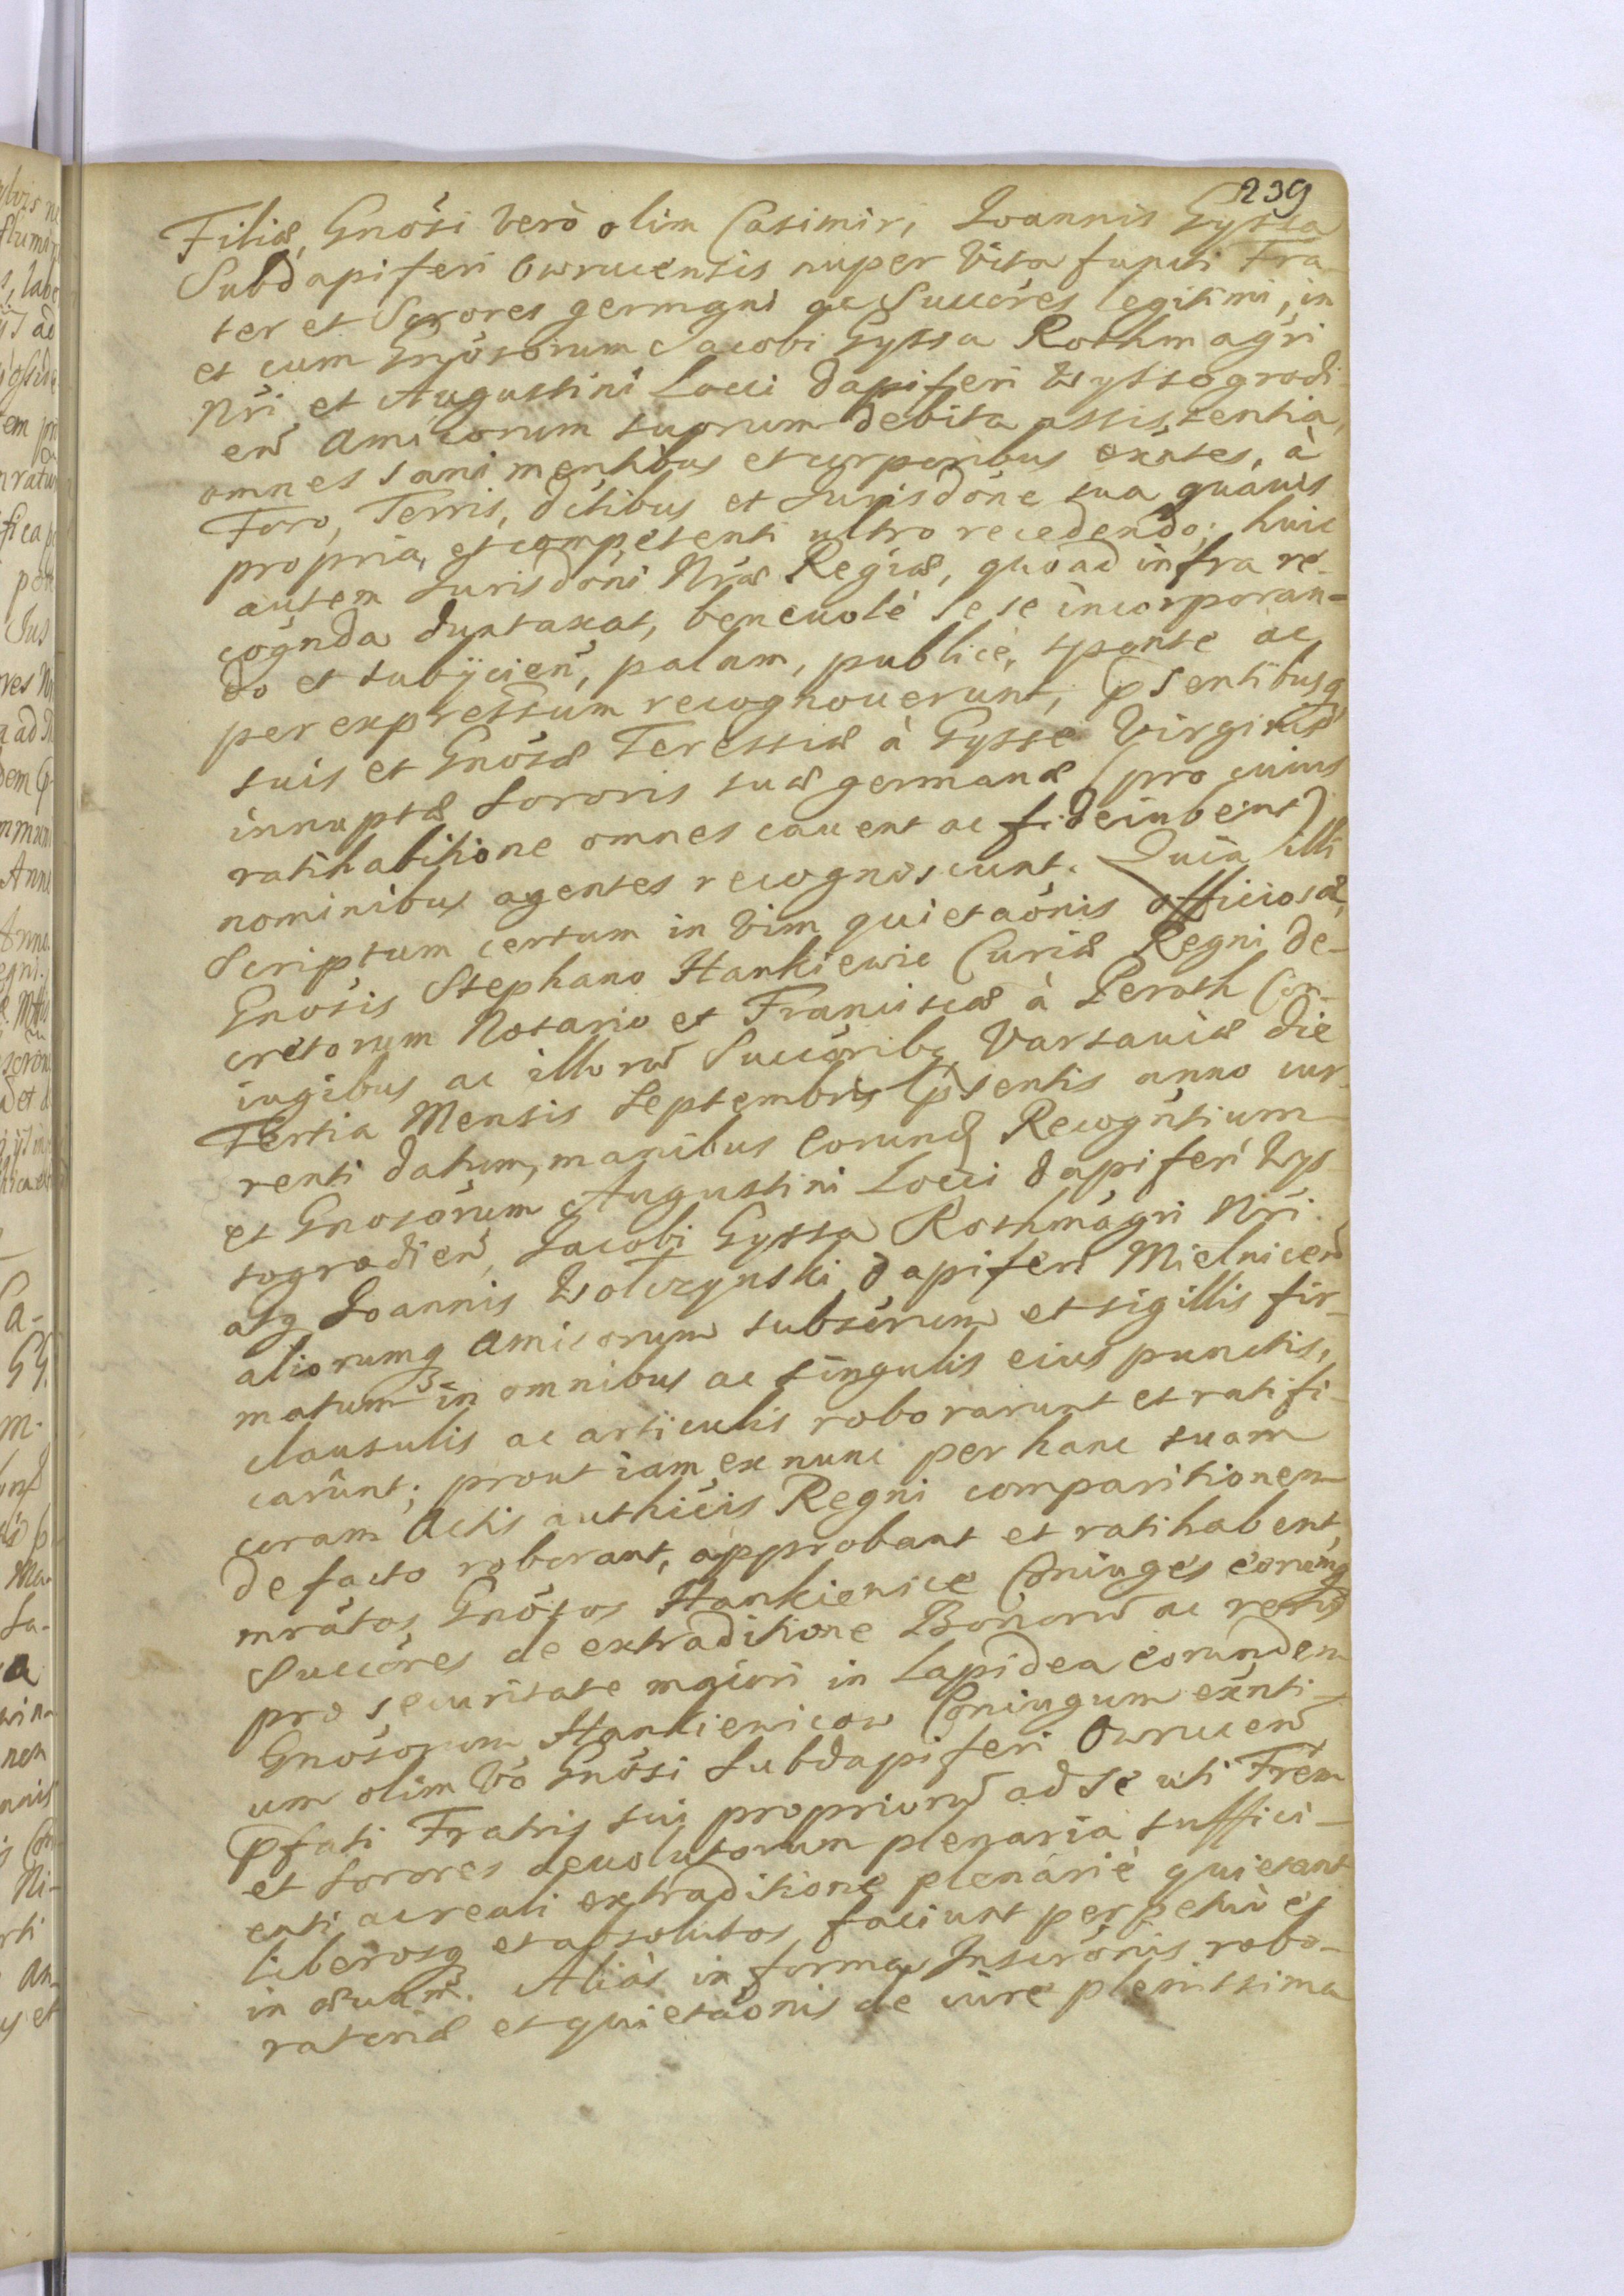 239
Filiæ, Gnosi vero olim Casimiri Ioannis Gyssa
Subdapiferi Owrucensis nuper vita functi Fra-
ter et Sorores germani ac Succores legitimi, in
et cum Gnosorum Iacobi Gyssa Rothmagri
Nri, et Augustini Locci dapiferi Wyssogrodi-
en amicorum suorum debita assistentia,
omnes sani mentibus et corporibus exntes, à
Foro, Terris, dctibus et Jurisdone sua quavis
propria, et competenti ultro recedendo; huic
autem Jurisdoni Nræ Regiæ, quoad infra re-
cognda duntaxat, benevolè sese incorporan-
do et subijcien, palam, publicè, sponte ac
per expressum recognoverunt, psentibusq
suis et Gnosæ Teressiæ à Gysse Virginis
innuptæ Sororis suæ germanæ (pro cuius
ratihabitione omnes cavent ac fideiubeint)
nominibus agentes recognoscunt. Quia illi
Scriptum certum in vim quietaonis officiosæ,
Gnosis Stephano Hankiewic Curiæ Regni De-
cretorum Notario et Franciscæ à Peroth Con-
iugibus ac illorum Succoribq Varsaviæ die
Tertia Mensis Septembris psentis anno cur-
renti datum, manibus eorund Recogntium
et Gnosorum Augustini Locci dapiferi Wys-
sogrodien, Iacobi Gyssa Rothmagri Nri
atq Ioannis Wolczynski dapiferi Mielnicen
aliorumq amicorum subscrium et sigillis fir-
matum in omnibus ac singulis eius punctis,
clausulis ac articulis roborarunt et ratifi-
carunt; prout iam ex nunc per hanc suam
coram Actis authicis Regni comparitionem
de facto roborant, approbant et ratihabent,
mratos Gnosos Hankiewice Coniuges eorumq
Succores de extraditione Bonorum ac rerum
pro securitate maiori in Lapidea eorundem
Gnosorum Hankiewicow Coniugum exnti-
um olim vo Gnosi Subdapiferi Owrucen
pfati Fratris sui propriorum ad se uti Frem
et Sorores devolutorum plenaria suffici-
enti ac reali extraditione plenariè quietant
liberosq et absolutos faciunt perpetuò et
in ævum. Aliàs in forma Inscronis robo-
ratoriæ et quietaonis de iure plenissima